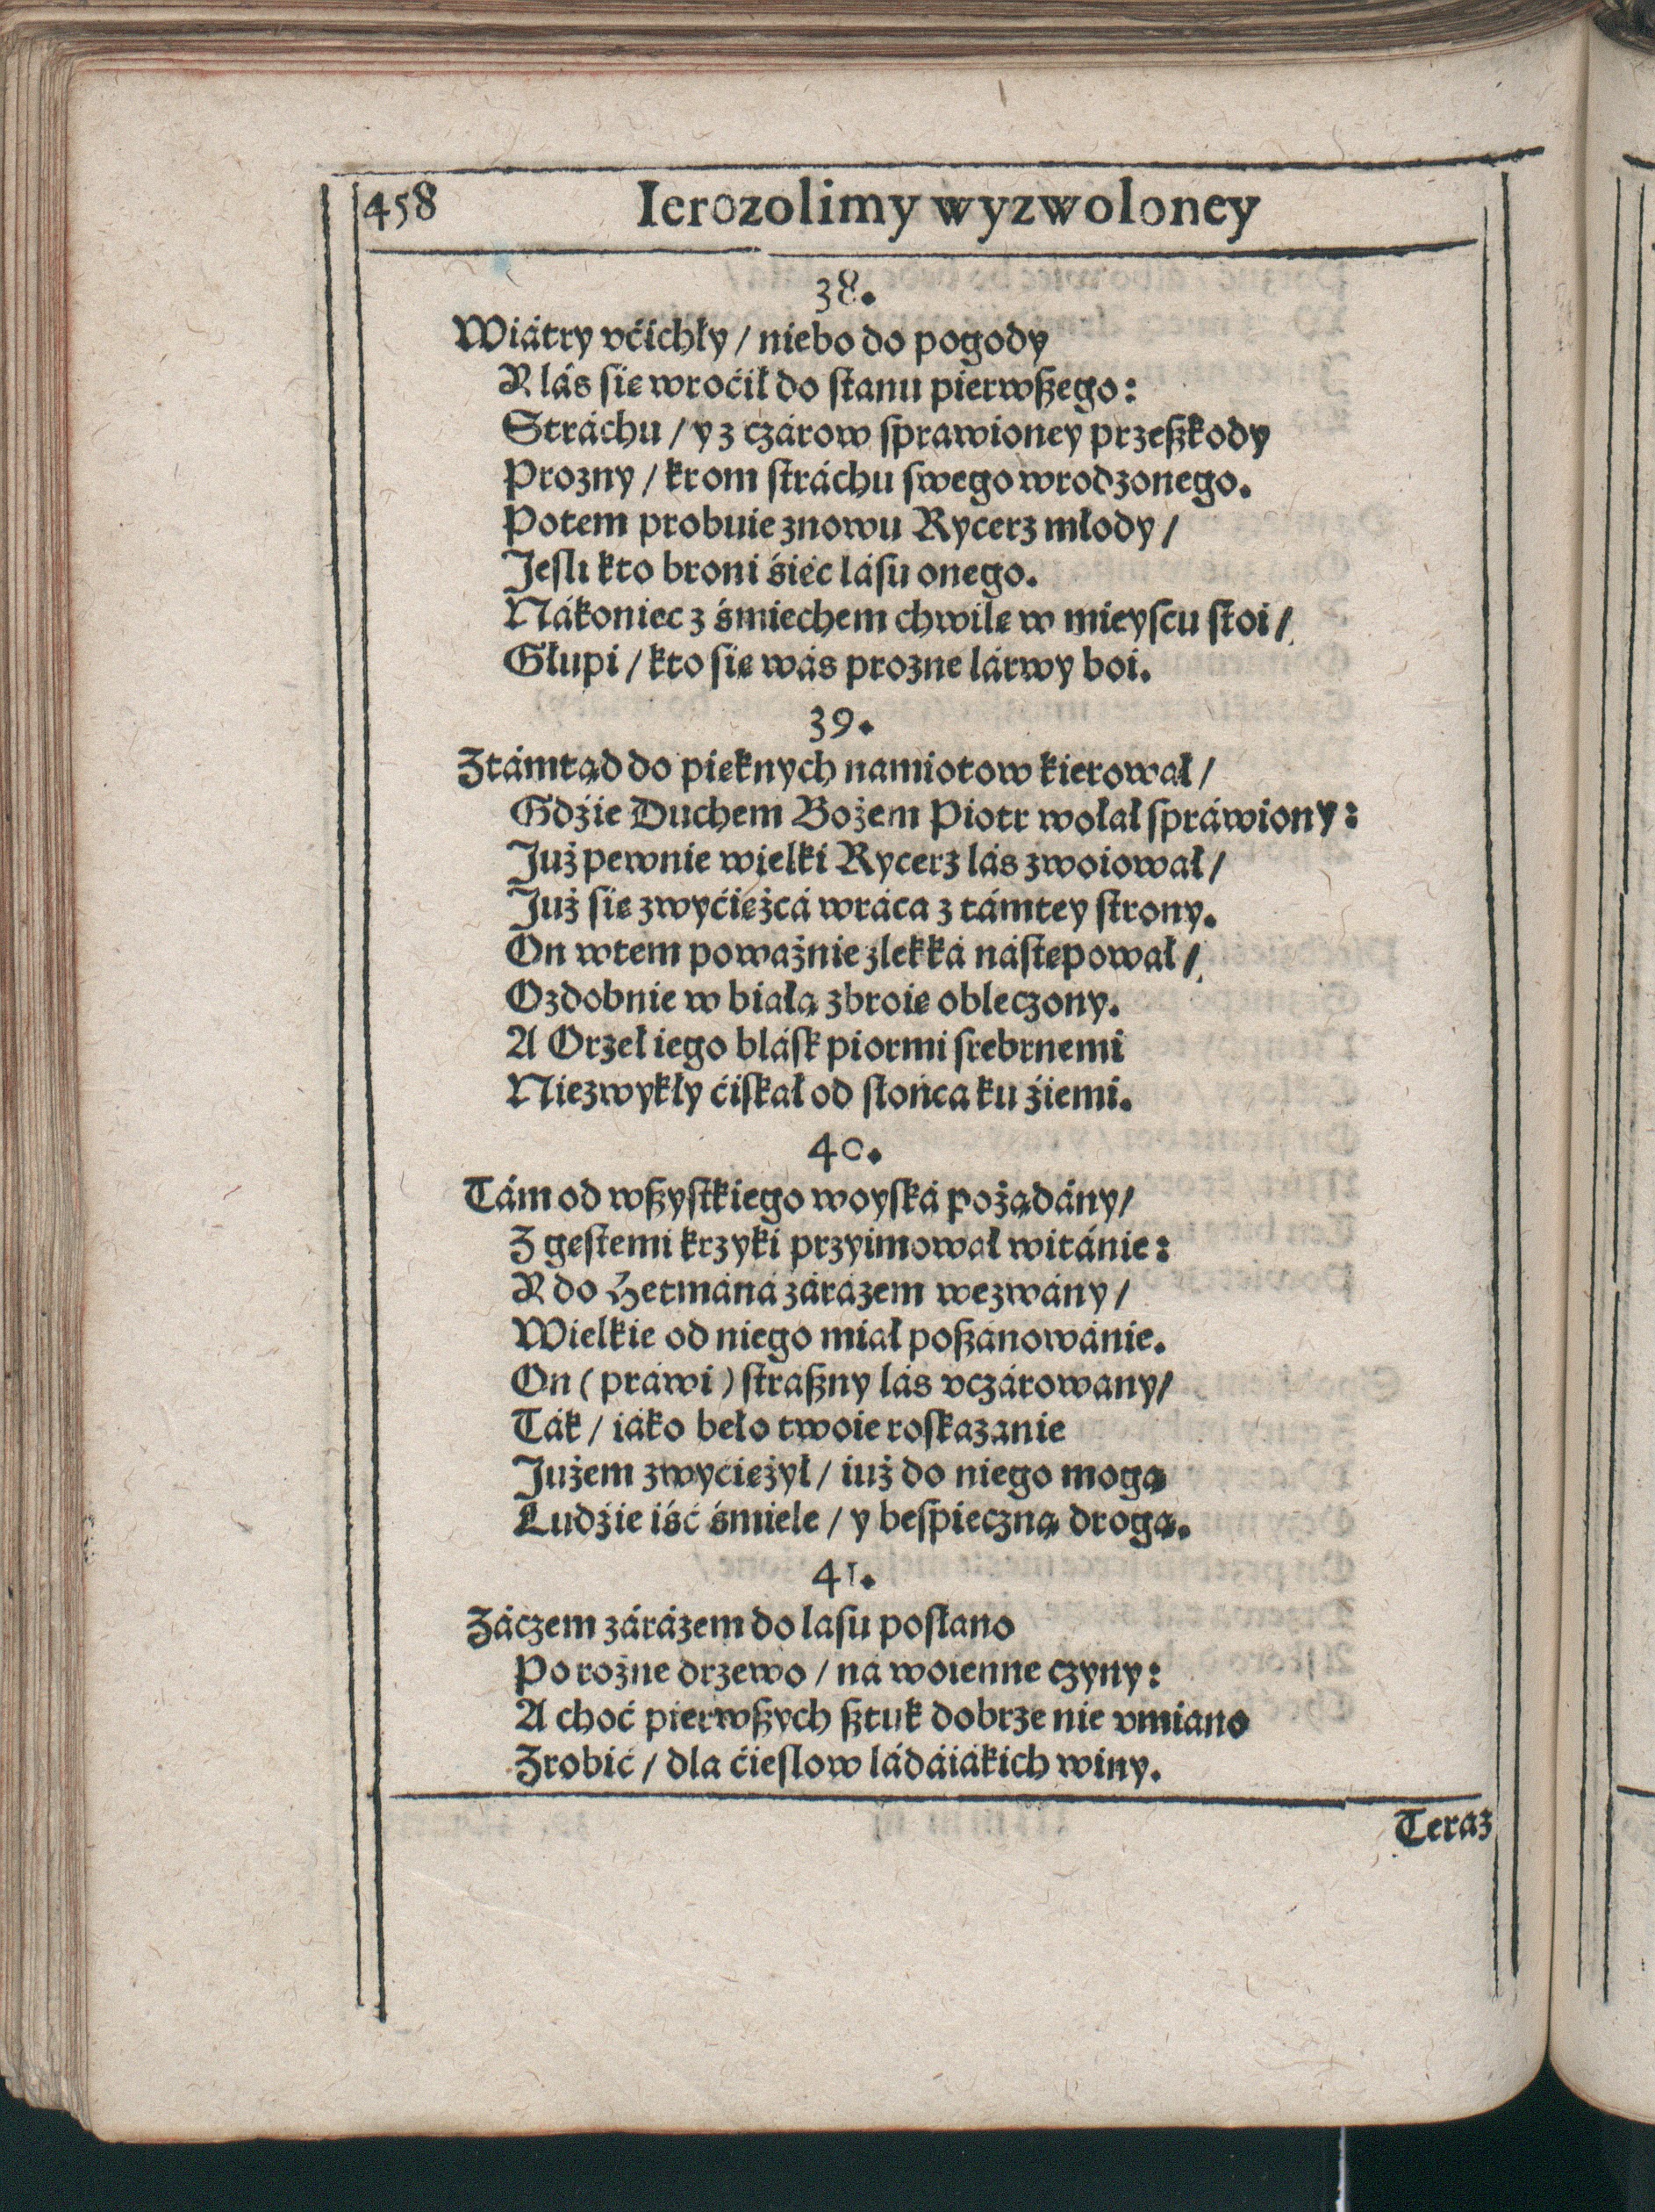 458 Ierozolimy wyzwoloney
38.
Wiátry vćichły / niebo do pogody
Y lás się wroćił do stanu pierwßego:
Stráchu / y z czárow sprawioney przeßkody
Prozny / krom stráchu swego wrodzonego.
Potem probuie znowu Rycerz młody /
Jesli kto broni śiéc lásu onego.
Nákoniec z śmiechem chwilę w mieyscu stoi /
Głupi / kto się wás prozne lárwy boi.
39.
Ztámtąd do pięknych namiotow kierował /
Gdźie Duchem Bożem Piotr wołał spráwiony:
Już pewnie wielki Rycerz lás zwoiował /
Już się zwyćiężcá wráca z támtey strony.
On wtem poważnie zlekká nástępował /
Ozdobnie w białą zbroię obleczony.
A Orzeł iego blásk piormi srebrnemi
Niezwykły ćiskał od słońca ku źiemi.
40.
Tám od wßystkiego woyská pożądány /
Z gęstemi krzyki przyimował witánie:
Y do Hetmáná zárázem wezwány /
Wielkie od niego miał poßánowánie.
On ( práwi ) straßny lás vczárowany /
Ták / iáko beło twoie roskazanie
Jużem zwyciężył / iuż do niego mogą
Ludźie iść śmiele / y bespieczną drogą.
41.
Záczem zárázem do lasu posłano
Po rożne drzewo / ná woienne czyny:
A choć pierwßych ßtuk dobrze nie vmiano
Zrobić / dla ćieslow ládáiákich winy.
Teraz